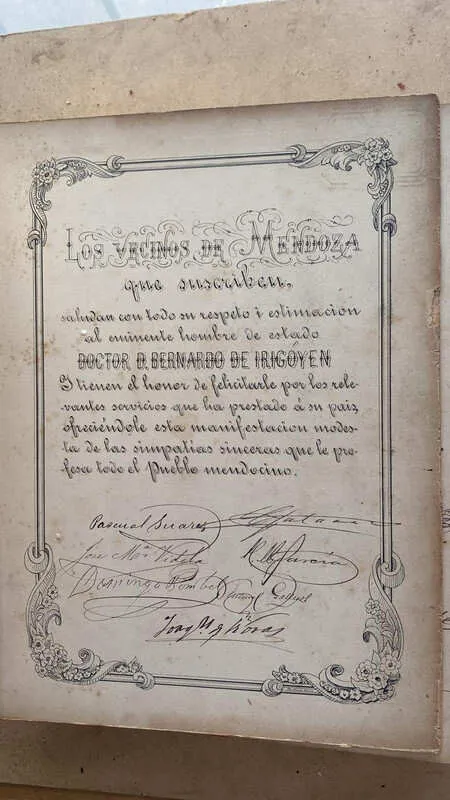 Los vecinos de Mendoza
que suscriben,
saludan con todo su respeto i estimacion
al eminente hombre de estado
DOCTOR D. BERNARDO DE IRIGÓYEN
I tienen el honor de felicitarle por los rele-
vantes servicios que ha prestado á su pais,
ofreciéndole esta manifestacion modes-
ta de las simpatias sinceras que le pro-
fesa todo el Pueblo mendocino.
Pascual Suarez
José Ma. Videla
R. M. García
Domingo Bombal